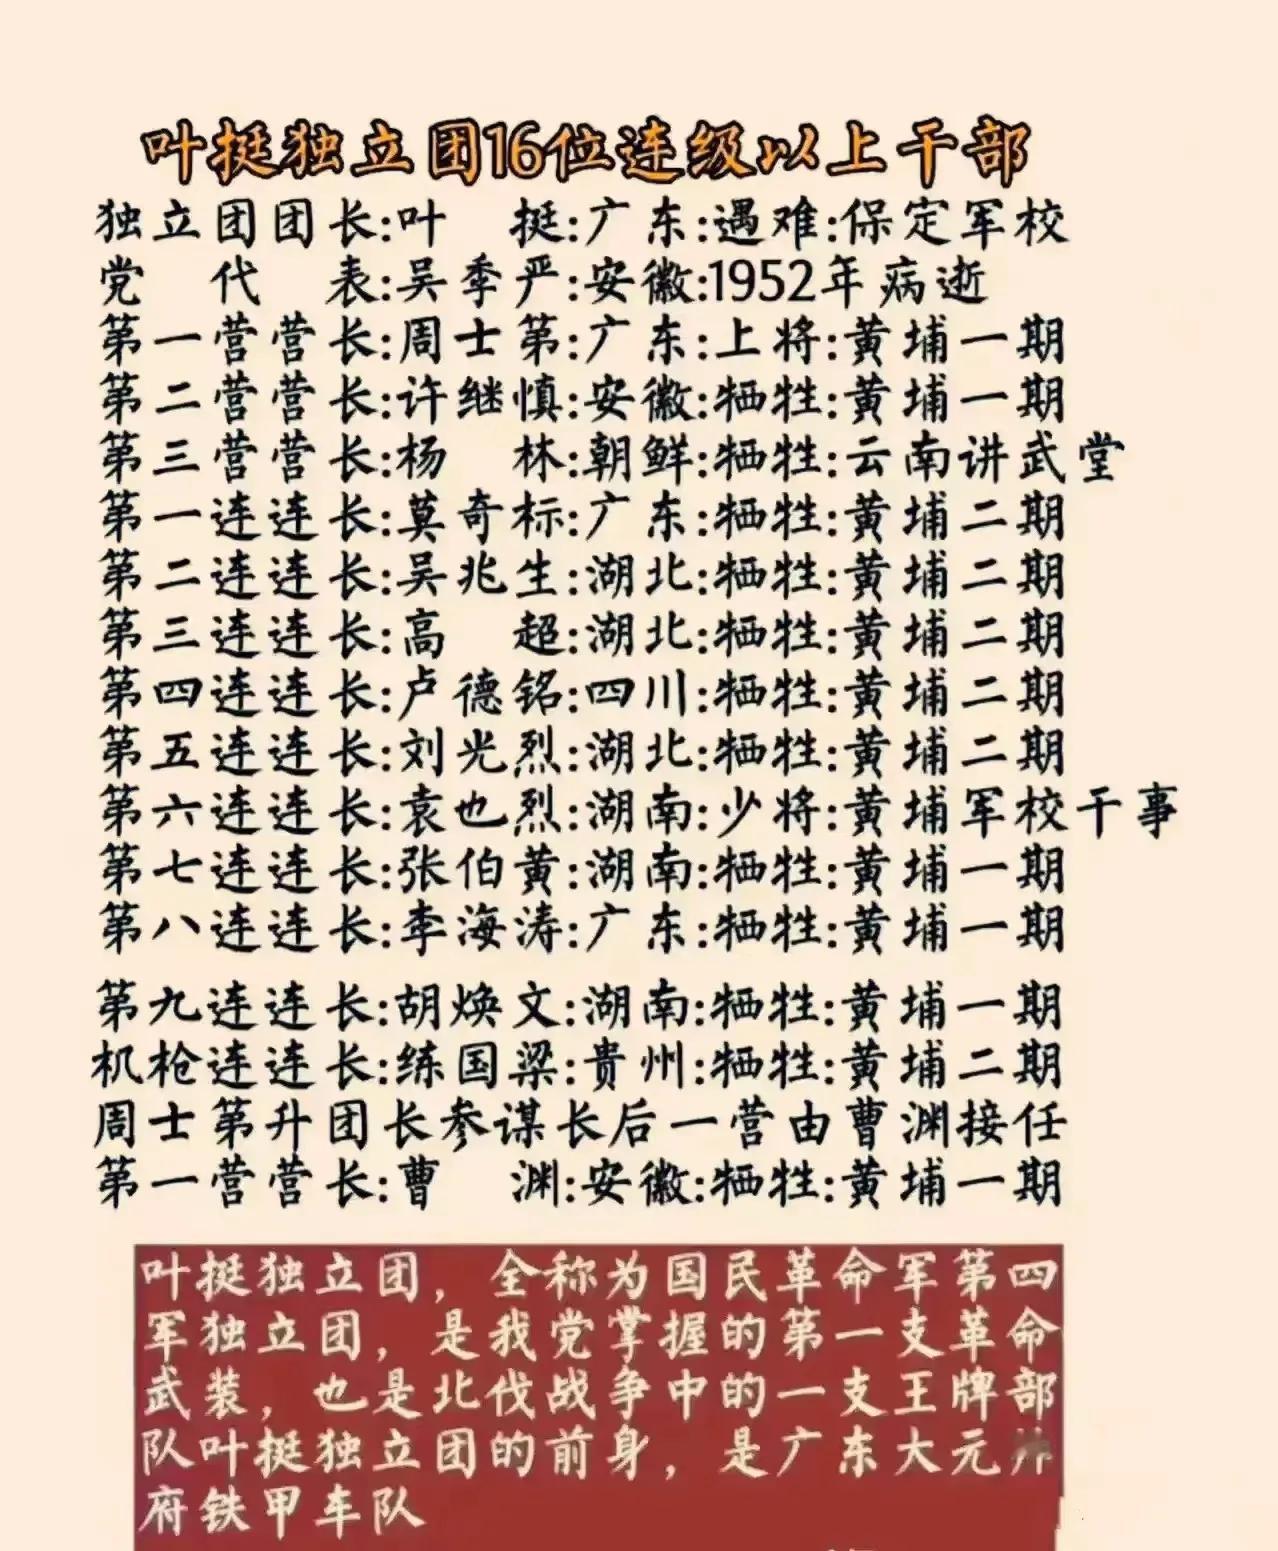 叶挺独立团16位连级以上干部
独立团团长:叶 挺:广东:遇难:保定军校
党 代 表:吴季严:安徽:1952年病逝
第一营营长:周士第:广东:上将:黄埔一期
第二营营长:许继慎:安徽:牺牲:黄埔一期
第三营营长:杨 林:朝鲜:牺牲:云南讲武堂
第一连连长:莫奇标:广东:牺牲:黄埔二期
第二连连长:吴兆生:湖北:牺牲:黄埔二期
第三连连长:高 超:湖北:牺牲:黄埔二期
第四连连长:卢德铭:四川:牺牲:黄埔二期
第五连连长:刘光烈:湖北:牺牲:黄埔二期
第六连连长:袁也烈:湖南:少将:黄埔军校干事
第七连连长:张伯黄:湖南:牺牲:黄埔一期
第八连连长:李海涛:广东:牺牲:黄埔一期
第九连连长:胡焕文:湖南:牺牲:黄埔一期
机枪连连长:练国梁:贵州:牺牲:黄埔二期
周士第升团长参谋长后一营由曹渊接任
第一营营长:曹 渊:安徽:牺牲:黄埔一期
叶挺独立团，全称为国民革命军第四
军独立团，是我党掌握的第一支革命
武装，也是北伐战争中的一支王牌部
队叶挺独立团的前身，是广东大元
府铁甲车队